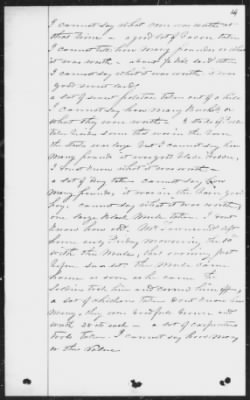 I cannot say what corn was worth at
that time - a good set of Bacon taken
I cannot tell how many pounds or what
it was worth - about lard taken
I cannot say what it was worth it was
good sweet lard
a lot of sweet potatoes taken out of a hill
I cannot say how many bushels or
what they were worth - of
taken this was in the barn
the was big but I cannot say how
many pounds it was good
I dont know what it was worth
a lot of hay taken cannot say how
many pounds, it was in the barn, good
hay. cannot say what it was worth,
one large black Mule taken. I dont
know how old. Mr left
home on Friday morning the 10
with the Mule, that evening just
before sun set the Mule came
home as soon as he came the
soldiers took him and carried him off
a lot of chickens taken dont know how
many, they were full grown and
worth 25 cts each - a set of carpenters
tools taken. I cannot say how many
or the value